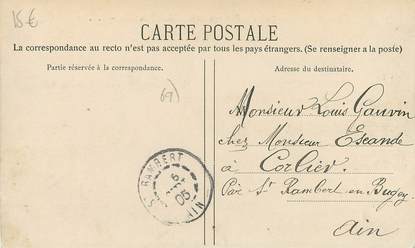 15 €
CARTE POSTALE
La correspondance au recto n'est pas acceptée par tous les pays étrangers. (Se renseigner à la poste)
Partie réservée à la correspondance.
Adresse du destinataire.
69
Monsieur Louis Gauvin
chez Monsieur Escande
à Corlier.
Par St Rambert en Bugey
Ain
ST RAMBERT
5
05
AIN